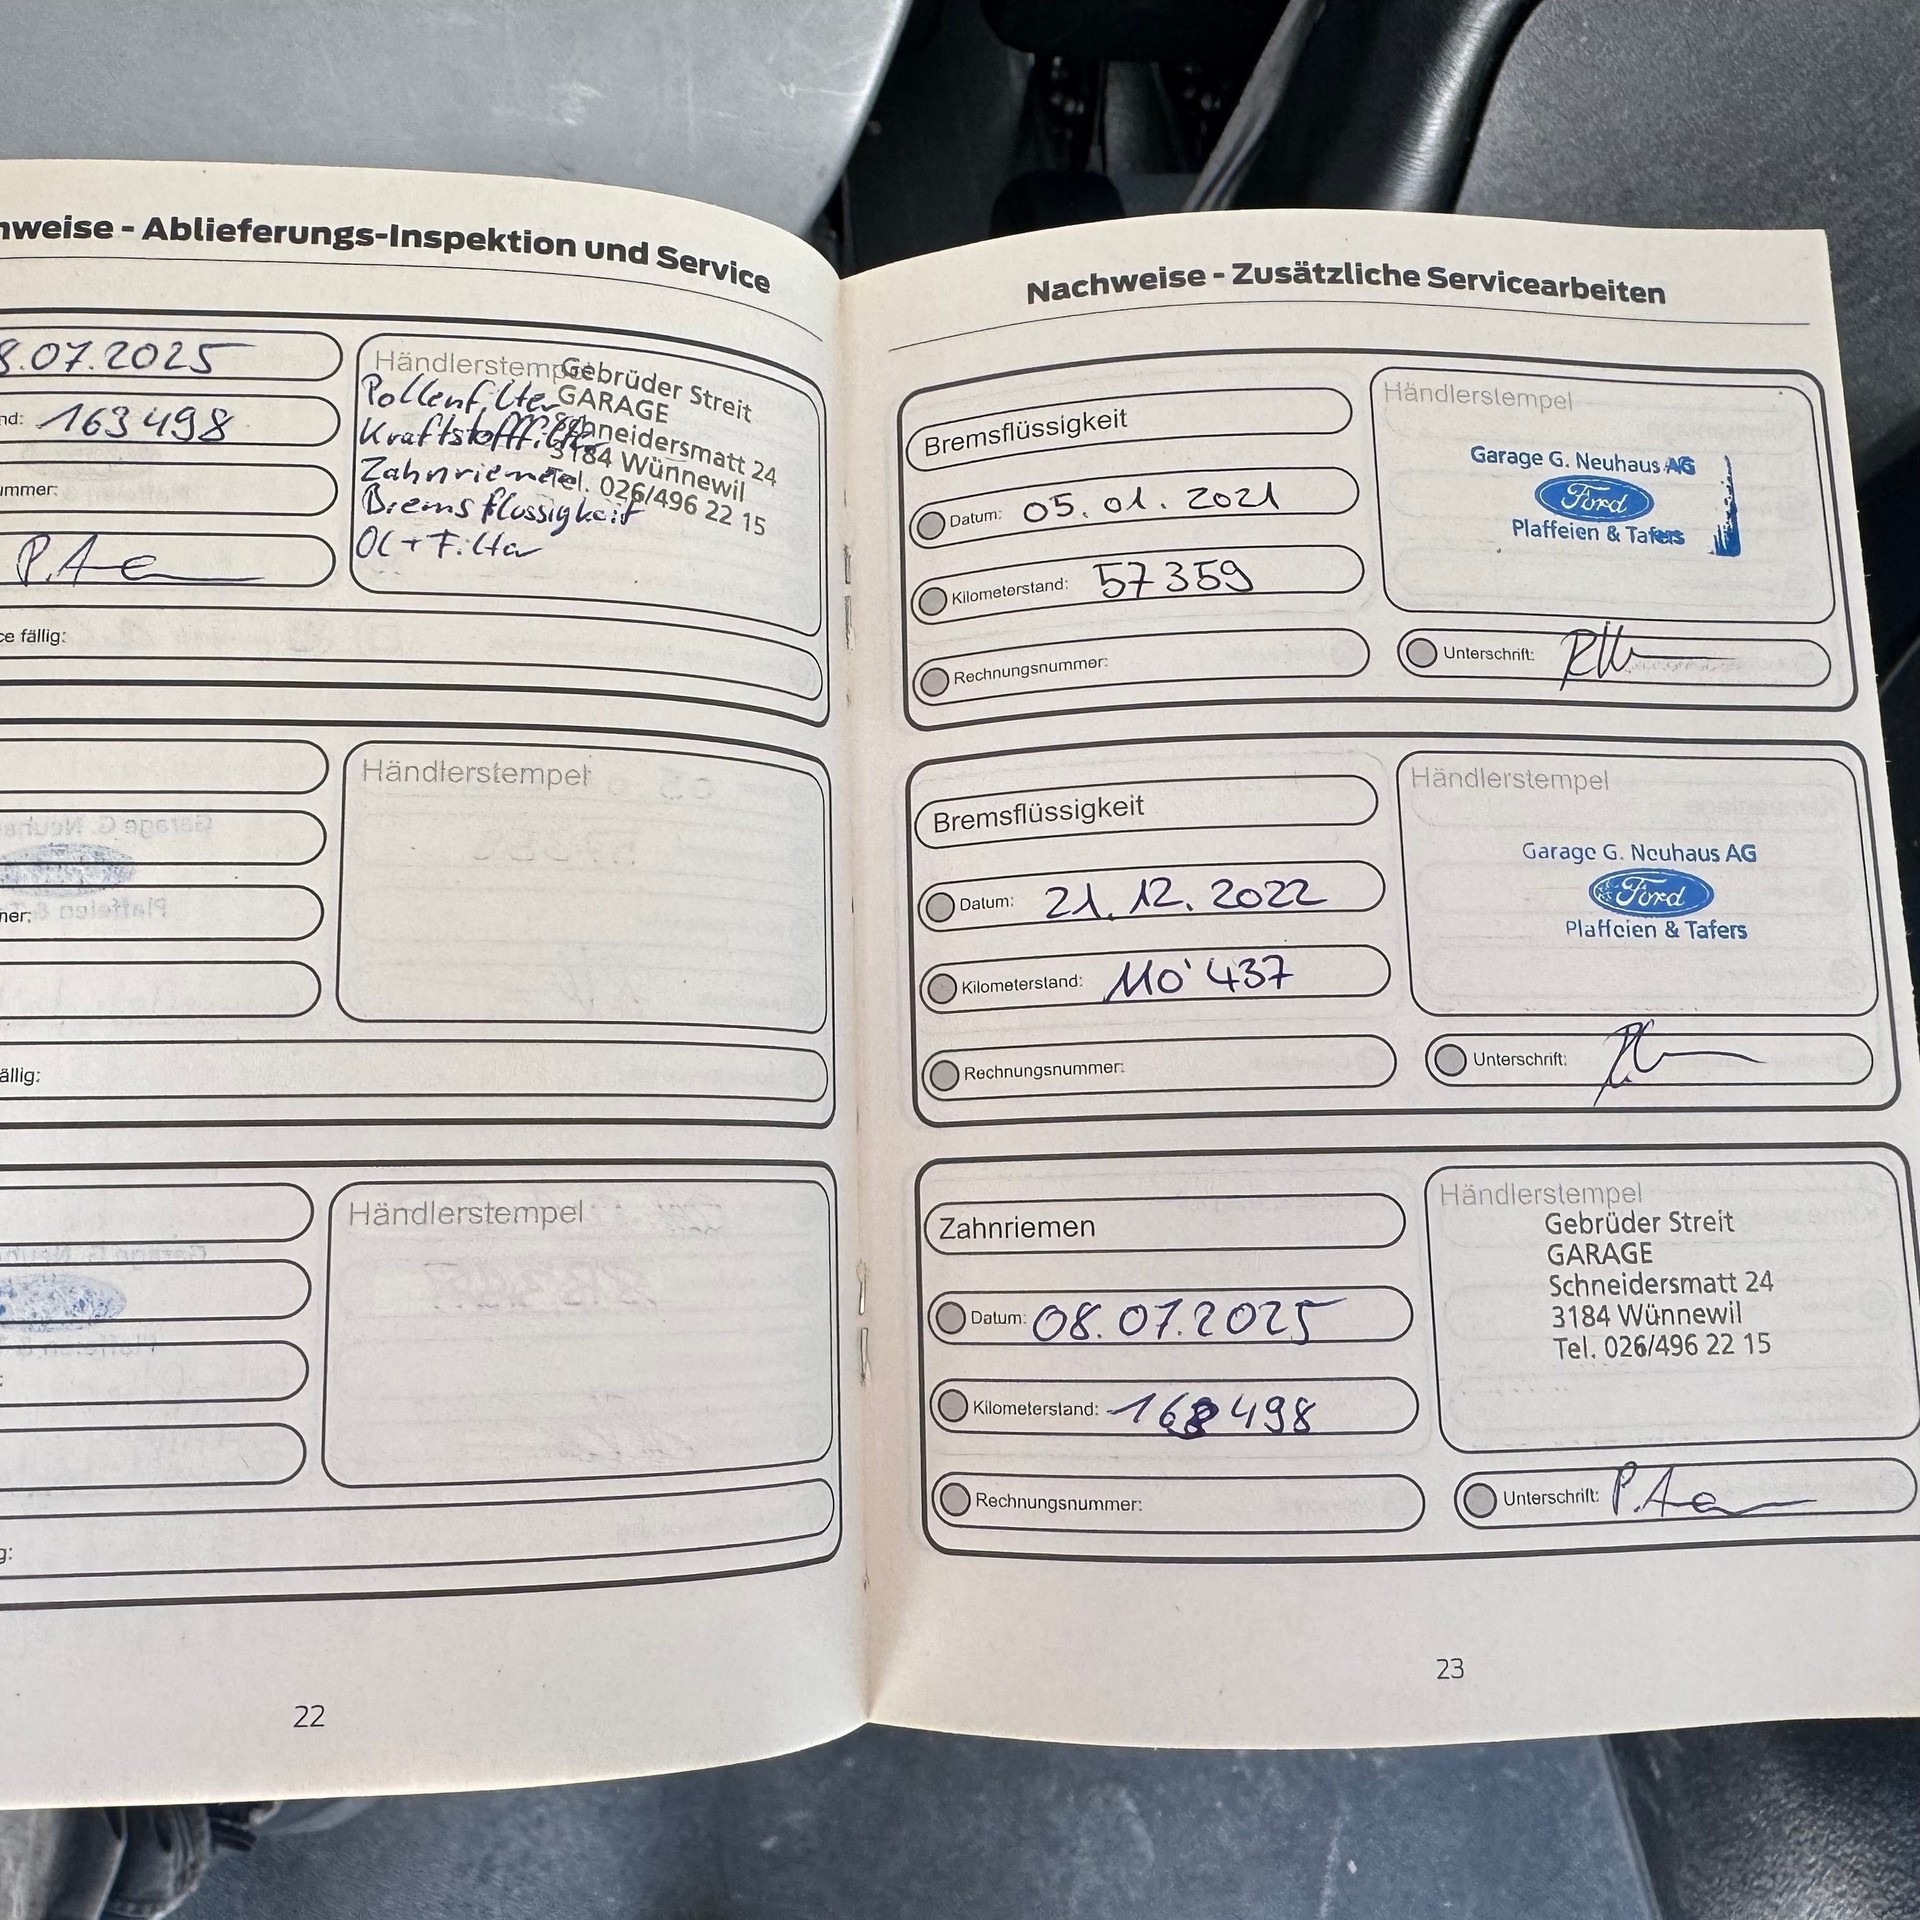 hweise - Ablieferungs-Inspektion und Service
8.07.2025
nd: 163498
ummer:
P.A
ce fällig:
Händlerstempel
Gebrüder Streit
GARAGE
Schneidersmatt 24
3184 Wünnewil
Tel. 026/496 22 15
Pollenfilter
Kraftstofffilter
Zahnriemen
Bremsflüssigkeit
Öl + Filter
Händlerstempel
ner:
ällig:
Händlerstempel
:
g:
22
Nachweise - Zusätzliche Servicearbeiten
Bremsflüssigkeit
Datum: 05.01.2021
Kilometerstand: 57359
Rechnungsnummer:
Händlerstempel
Garage G. Neuhaus AG
Ford
Plaffeien & Tafers
Unterschrift:
Bremsflüssigkeit
Datum: 21.12.2022
Kilometerstand: 110'437
Rechnungsnummer:
Händlerstempel
Garage G. Neuhaus AG
Ford
Plaffeien & Tafers
Unterschrift:
Zahnriemen
Datum: 08.07.2025
Kilometerstand: 163498
Rechnungsnummer:
Händlerstempel
Gebrüder Streit
GARAGE
Schneidersmatt 24
3184 Wünnewil
Tel. 026/496 22 15
Unterschrift: P.A
23